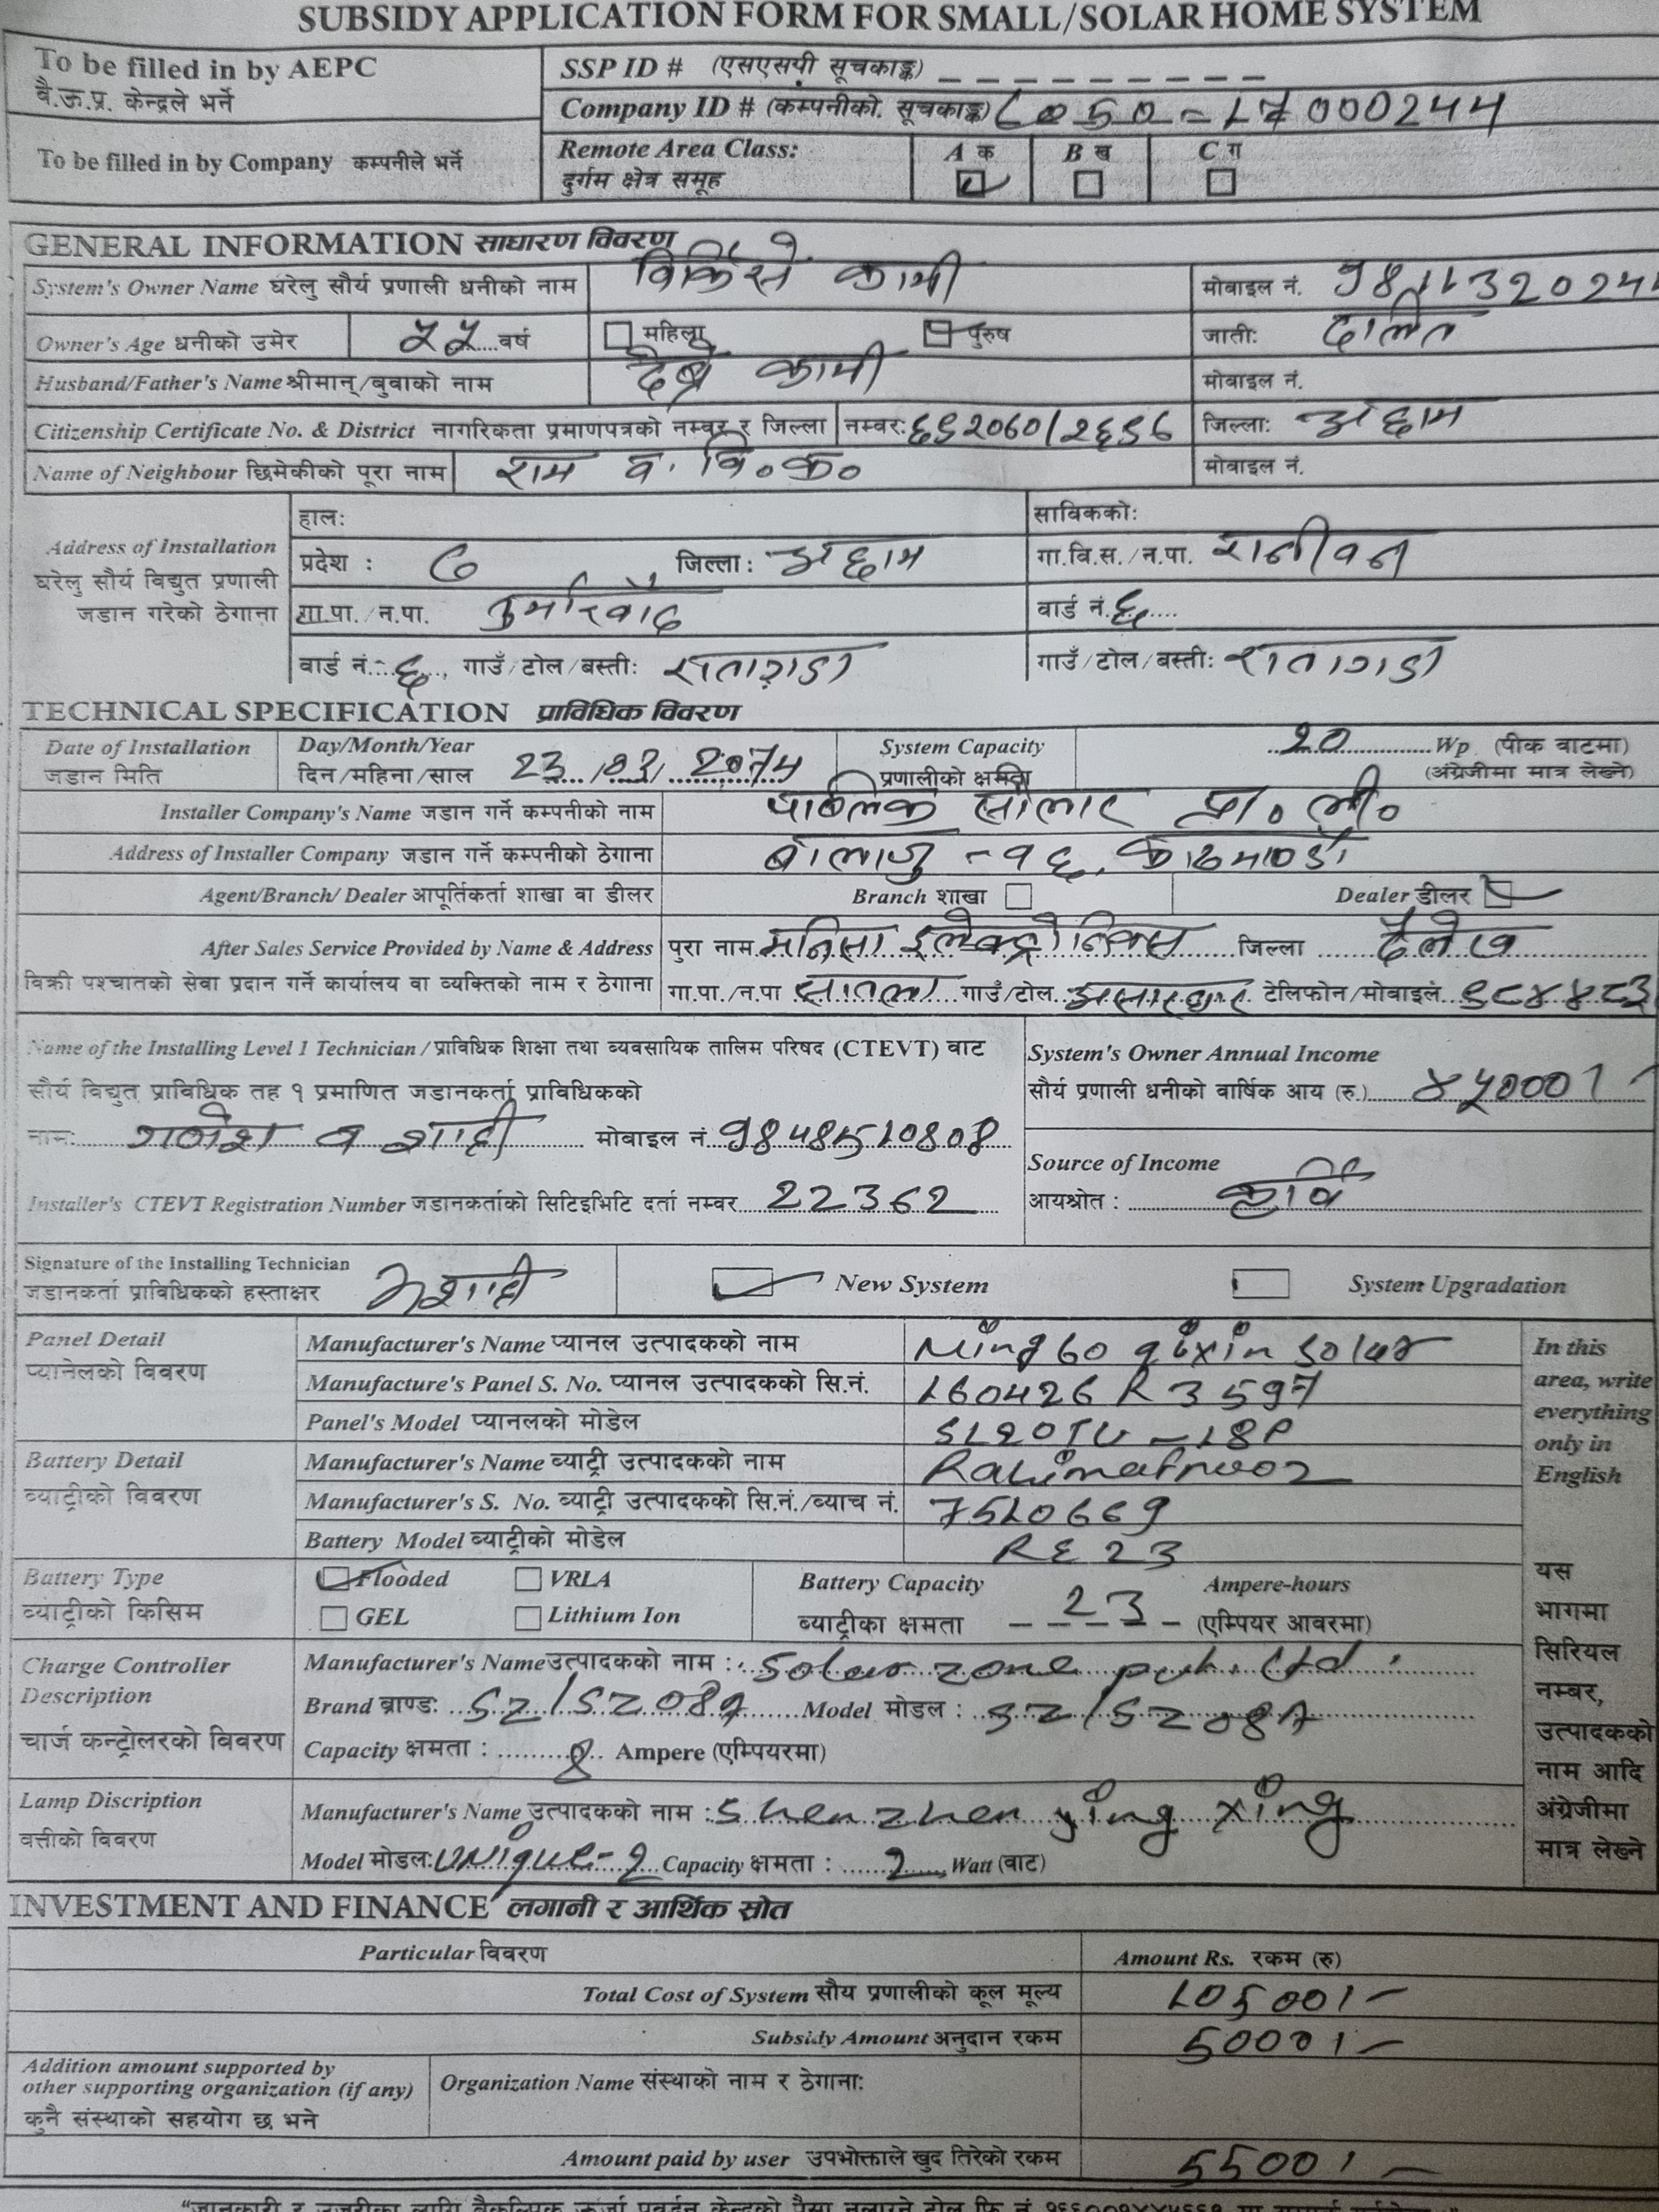 SUBSIDY APPLICATION FORM FOR SMALL/SOLAR HOME SYSTEM
To be filled in by AEPC
वै.ऊ.प्र. केन्द्रले भर्ने
SSP ID # (एसएसपी सूचकाङ्क)
Company ID # (कम्पनीको सूचकाङ्क) 000244
To be filled in by Company कम्पनीले भर्ने
Remote Area Class: A क B ख C ग
दुर्गम क्षेत्र समूह
GENERAL INFORMATION साधारण विवरण
System's Owner Name घरेलु सौर्य प्रणाली धनीको नाम कामी मोबाइल नं.
Owner's Age धनीको उमेर वर्ष महिला पुरुष जाती: दलित
Husband/Father's Name श्रीमान्/बुवाको नाम कामी मोबाइल नं.
Citizenship Certificate No. & District नागरिकता प्रमाणपत्रको नम्बर र जिल्ला नम्बर: जिल्ला: अछाम
Name of Neighbour छिमेकीको पूरा नाम राम ब. वि०क० मोबाइल नं.
Address of Installation
घरेलु सौर्य विद्युत प्रणाली
जडान गरेको ठेगाना
हाल: साविकको:
प्रदेश : ७ जिल्ला: अछाम गा.वि.स./न.पा. रानीवन
गा.पा./न.पा. वार्ड नं. ६
वार्ड नं. ६, गाउँ/टोल/बस्ती: रातागडा गाउँ/टोल/बस्ती: रातागडा
TECHNICAL SPECIFICATION प्राविधिक विवरण
Date of Installation
जडान मिति
Day/Month/Year
दिन/महिना/साल 23/03/2074
System Capacity
प्रणालीको क्षमता
20 Wp (पीक वाटमा)
(अंग्रेजीमा मात्र लेख्ने)
Installer Company's Name जडान गर्ने कम्पनीको नाम पब्लिक सोलार प्रा० ली०
Address of Installer Company जडान गर्ने कम्पनीको ठेगाना बालाजु -१६, काठमाण्डौ
Agent/Branch/ Dealer आपूर्तिकर्ता शाखा वा डीलर Branch शाखा Dealer डीलर
After Sales Service Provided by Name & Address पुरा नाम मनिसा इलेक्ट्रोनिक्स जिल्ला दैलेख
विक्री पश्चातको सेवा प्रदान गर्ने कार्यालय वा व्यक्तिको नाम र ठेगाना गा.पा./न.पा गाउँ/टोल टेलिफोन/मोबाइलं ९८४४८३
Name of the Installing Level 1 Technician / प्राविधिक शिक्षा तथा व्यवसायिक तालिम परिषद (CTEVT) वाट
सौर्य विद्युत प्राविधिक तह १ प्रमाणित जडानकर्ता प्राविधिकको
नाम: गणेश ब शाही मोबाइल नं. 9848510808
System's Owner Annual Income
सौर्य प्रणाली धनीको वार्षिक आय (रु.) ४५०००।-
Source of Income
आयश्रोत : कृषि
Installer's CTEVT Registration Number जडानकर्ताको सिटिइभिटि दर्ता नम्बर 22362
Signature of the Installing Technician
जडानकर्ता प्राविधिकको हस्ताक्षर
New System System Upgradation
Panel Detail
प्यानेलको विवरण
Manufacturer's Name प्यानल उत्पादकको नाम Ningbo qixin Solar
Manufacture's Panel S. No. प्यानल उत्पादकको सि.नं. 160426 R 3597
Panel's Model प्यानलको मोडेल SL20TU-18P
Battery Detail
ब्याट्रीको विवरण
Manufacturer's Name ब्याट्री उत्पादकको नाम Rahimafrooz
Manufacturer's S. No. ब्याट्री उत्पादकको सि.नं./ब्याच नं. 7510669
Battery Model ब्याट्रीको मोडेल RE 23
Battery Type
ब्याट्रीको किसिम
Flooded VRLA
GEL Lithium Ion
Battery Capacity
ब्याट्रीका क्षमता 23
Ampere-hours
(एम्पियर आवरमा)
Charge Controller
Description
चार्ज कन्ट्रोलरको विवरण
Manufacturer's Name उत्पादकको नाम : Solar zone pvt. Ltd.
Brand ब्राण्ड: SZ/SZ08A Model मोडल : SZ/SZ08A
Capacity क्षमता : 8 Ampere (एम्पियरमा)
Lamp Discription
वत्तीको विवरण
Manufacturer's Name उत्पादकको नाम : Shenzhen ying xing
Model मोडल: Unique-2 Capacity क्षमता : 2 Watt (वाट)
In this
area, write
everything
only in
English
यस
भागमा
सिरियल
नम्बर,
उत्पादकको
नाम आदि
अंग्रेजीमा
मात्र लेख्ने
INVESTMENT AND FINANCE लगानी र आर्थिक स्रोत
Particular विवरण Amount Rs. रकम (रु)
Total Cost of System सौय प्रणालीको कूल मूल्य 10500/-
Subsidy Amount अनुदान रकम 5000/-
Addition amount supported by
other supporting organization (if any)
कुनै संस्थाको सहयोग छ भने
Organization Name संस्थाको नाम र ठेगाना:
Amount paid by user उपभोक्ताले खुद तिरेको रकम 5500/-